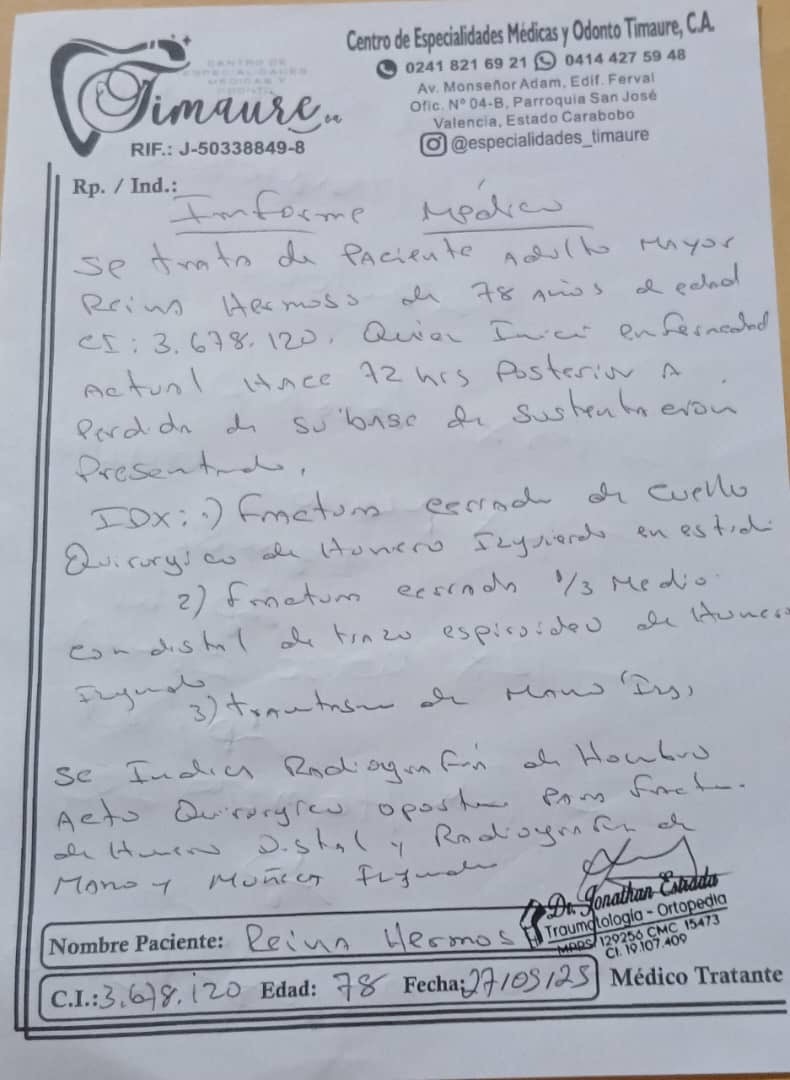 CENTRO DE
ESPECIALIDADES
MEDICAS Y
ODONTO
Timaure C.A
RIF.: J-50338849-8
Centro de Especialidades Médicas y Odonto Timaure, C.A.
0241 821 69 21 0414 427 59 48
Av. Monseñor Adam, Edif. Ferval
Ofic. Nº 04-B, Parroquia San José
Valencia, Estado Carabobo
@especialidades_timaure
Rp. / Ind.:
Informe Médico
Se trata de Paciente Adulto Mayor
Reina Hermoso de 78 Años de edad
CI: 3.678.120. Quien Inicia enfermedad
Actual Hace 72 hrs Posterior A
Perdida de su base de sustentación
Presentando.
IDX: 1) Fractura cerrada de Cuello
Quirurgico de Humero Izquierdo en estudio
2) Fractura cerrada 1/3 Medio
con distal de trazo espiroideo de Humero
Izquierdo
3) de Mano Izq.
Se Indica Radiografía de Hombro
Acto Quirurgico para
de Humero Distal y Radiografia de
Mano y Muñeca Izquierda
Dr. Jonathan Estrada
Traumatología - Ortopedia
MPPS 129256 CMC 15473
CI. 19.107.409
Nombre Paciente: Reina Hermos
C.I.: 3.678.120 Edad: 78 Fecha: 27/05/25 Médico Tratante